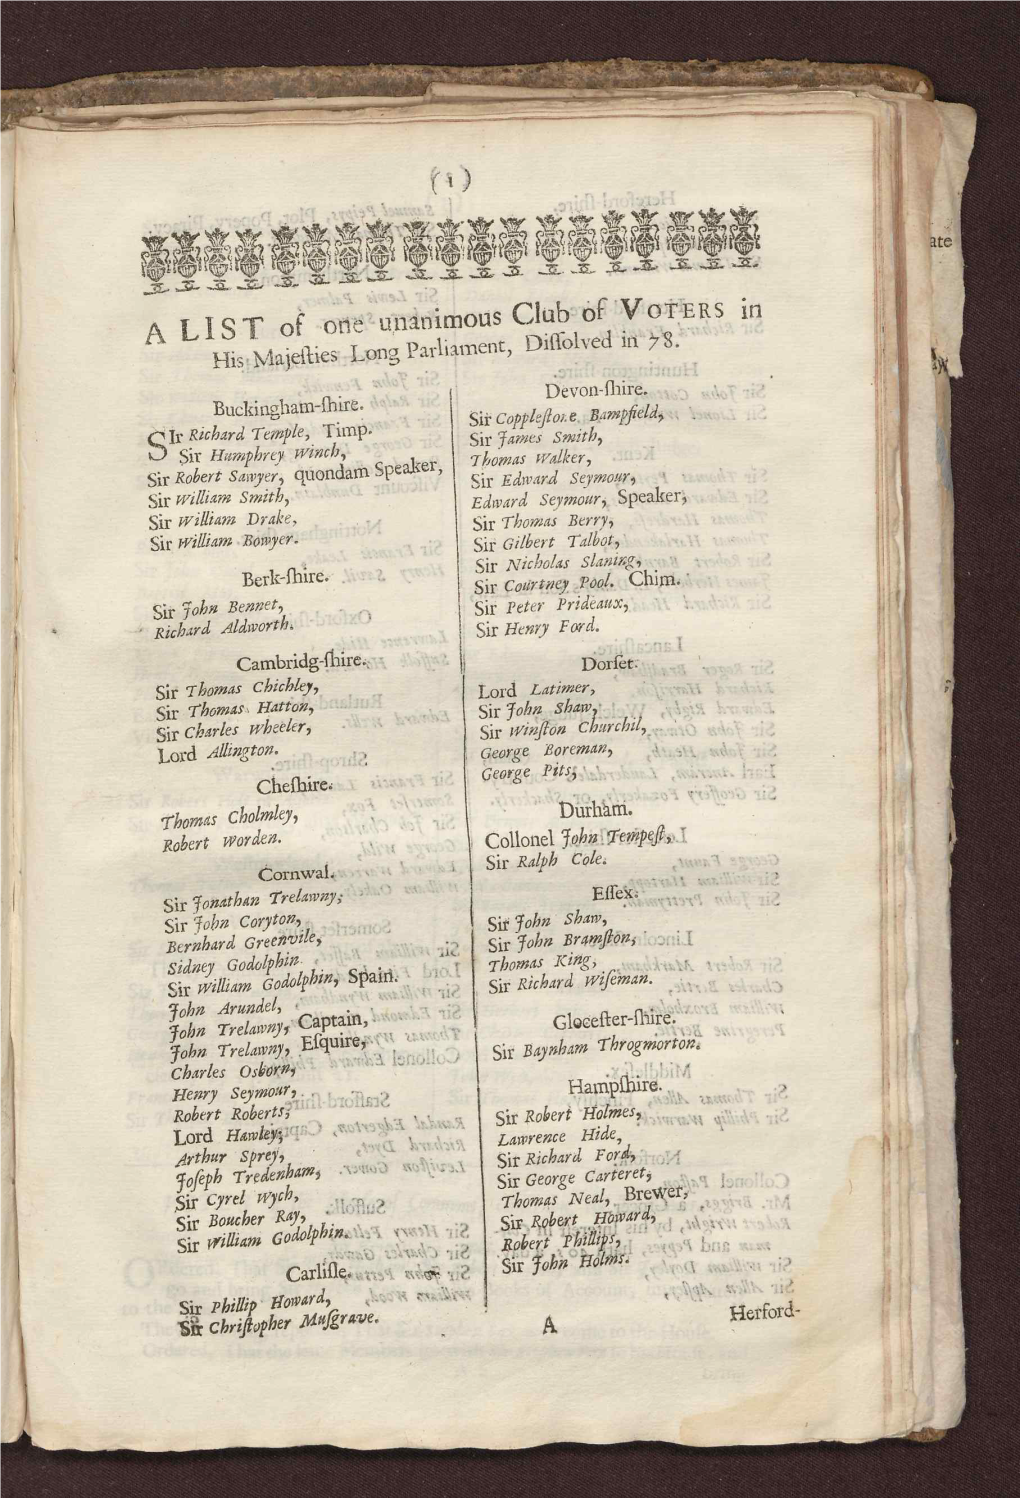 (1)
A LIST of one unanimous Club of VOTERS in
His Majeſties Long Parliament, Diſſolved in 78.
Buckingham-ſhire.
SIr Richard Temple, Timp.
Sir Humphrey Winch,
Sir Robert Sawyer, quondam Speaker,
Sir William Smith,
Sir William Drake,
Sir William Bowyer.
Berk-ſhire.
Sir John Bennet,
Richard Aldworth.
Cambridg-ſhire.
Sir Thomas Chichley,
Sir Thomas Hatton,
Sir Charles Wheeler,
Lord Allington.
Cheſhire.
Thomas Cholmley,
Robert Worden.
Cornwal.
Sir Jonathan Trelawny,
Sir John Coryton,
Bernhard Greenvile,
Sidney Godolphin
Sir William Godolphin, Spain.
John Arundel,
John Trelawny, Captain,
John Trelawny, Eſquire,
Charles Osborn,
Henry Seymour,
Robert Roberts,
Lord Hawley,
Arthur Sprey,
Joſeph Tredenham,
Sir Cyrel Wych,
Sir Boucher Ray,
Sir William Godolphin.
Carliſle.
Sir Phillip Howard,
Sir Chriſtopher Muſgrave.
Devon-ſhire.
Sir Coppleſtone Bampfield,
Sir James Smith,
Thomas Walker,
Sir Edward Seymour,
Edward Seymour, Speaker,
Sir Thomas Berry,
Sir Gilbert Talbot,
Sir Nicholas Slaning,
Sir Courtney Pool. Chim.
Sir Peter Prideaux,
Sir Henry Ford.
Dorſet.
Lord Latimer,
Sir John Shaw,
Sir Winſton Churchil,
George Boreman,
George Pits,
Durham.
Collonel John Tempeſt,
Sir Ralph Cole.
Eſſex.
Sir John Shaw,
Sir John Bramſton,
Thomas King,
Sir Richard Wiſeman.
Gloceſter-ſhire.
Sir Baynham Throgmorton.
Hampſhire.
Sir Robert Holmes,
Lawrence Hide,
Sir Richard Ford,
Sir George Carteret,
Thomas Neal, Brewer,
Sir Robert Howard,
Robert Phillips,
Sir John Holms.
A
Herford-
ate